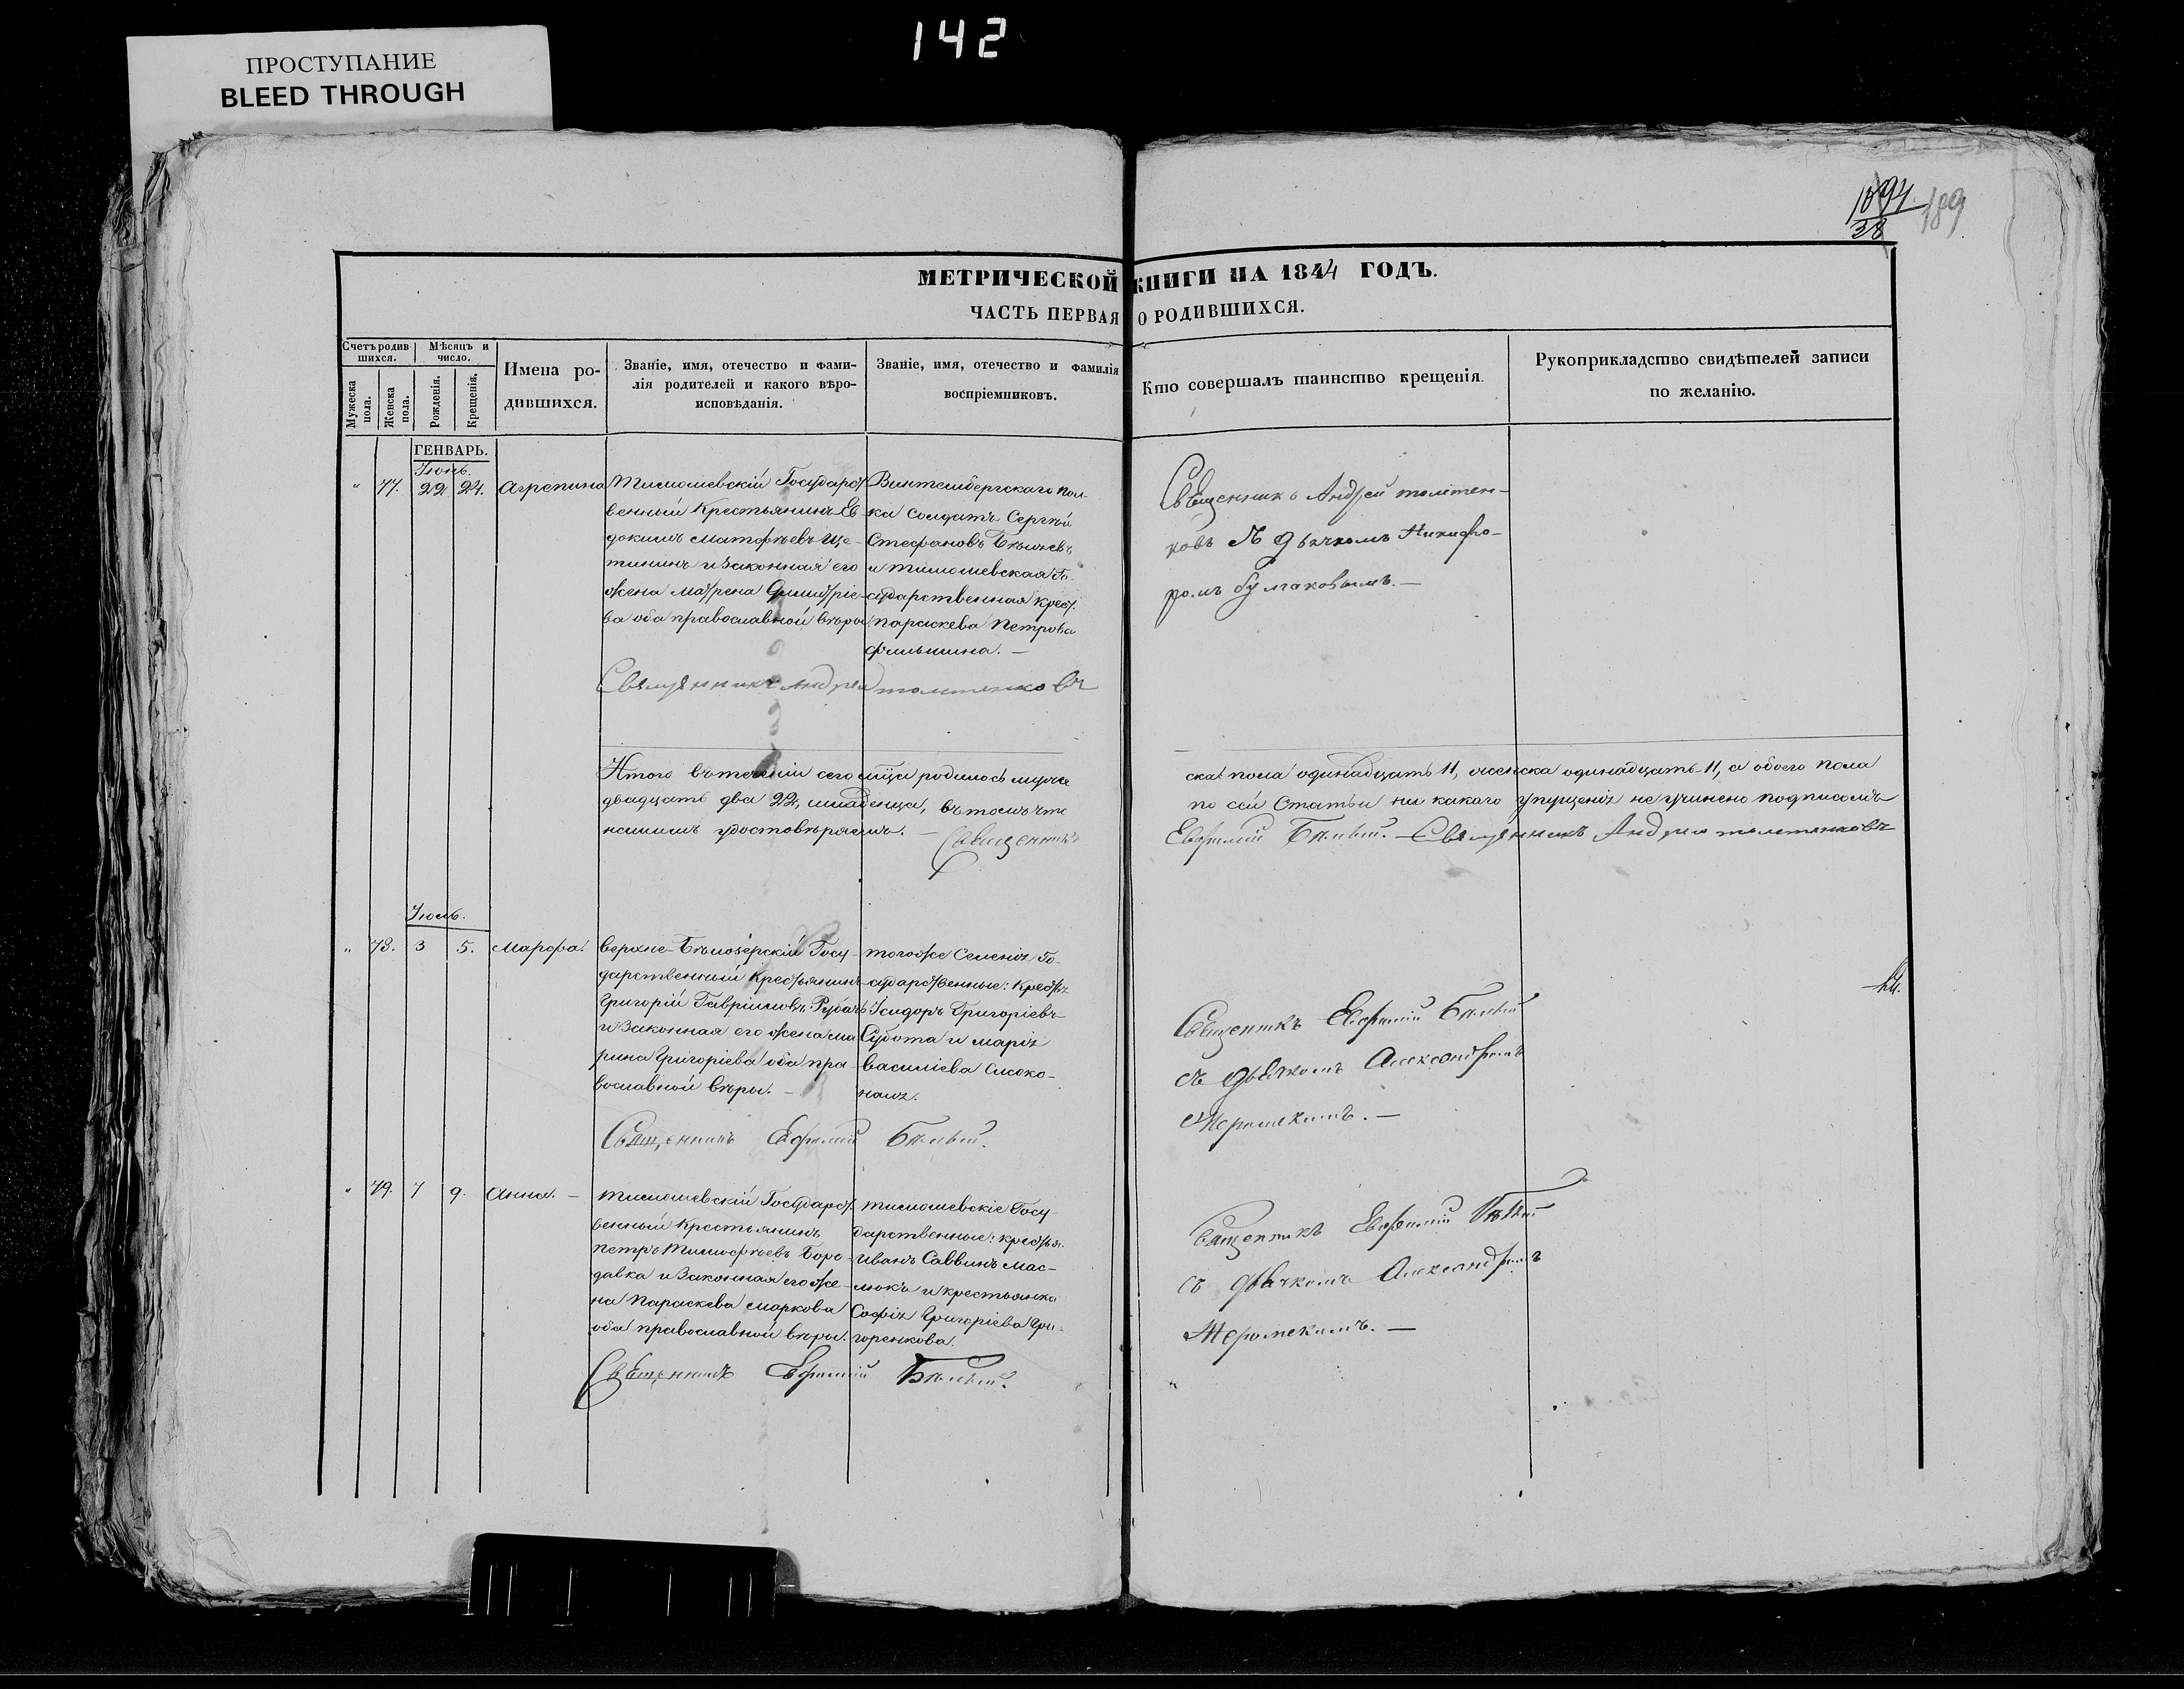 142
ПРОСТУПАНИЕ
BLEED THROUGH
189
38
МЕТРИЧЕСКОЙ КНИГИ НА 1844 ГОДЪ.
ЧАСТЬ ПЕРВАЯ О РОДИВШИХСЯ.
Счетъ родив-
шихся.
Мужеска
пола.
Женска
пола.
Мѣсяцъ и
число.
Рожденія.
Крещенія.
Имена ро-
дившихся.
Званіе, имя, отечество и фами-
лія родителей и какого вѣро-
исповѣданія.
Званіе, имя, отечество и фамилія
воспріемниковъ.
Кто совершалъ таинство крещенія.
Рукоприкладство свидѣтелей записи
по желанію.
ГЕНВАРЬ.
Іюнь.
" 77. 22 24. Агрепина
Тимошевскій Государст
венный Крестьянинъ Ев
докимъ Матфѣевъ Ще-
тининъ и Законная его
жена Матрена Димитріе-
ва оба православной вѣры
Виртембергскаго пол
ка Солдатъ Сергѣй
Стефановъ
и Тимошевская Го-
сударственная Крест.
Параскева Петрова
Священникъ Андрей
ковъ съ дьячкомъ Никифо-
ромъ Булгаковымъ. —
Священникъ Андрей
Итого въ теченіи сего мца родилось муже
ска пола одинадцать 11, женска одинадцать 11, а обоего пола
двадцать два 22, младенца, въ томъ что
по сей Статьи ни какаго упущенія не учинено подписомъ
нашимъ удостовѣряемъ. — Священникъ
Евфимій Бѣлый. — Священникъ Андрей
Іюль.
" 78. 3 5. Марфа.
Верхне-Бѣлозерскій Госу-
дарственный Крестьянинъ
Григорій Гавріиловъ
и Законная его жена Ма
рина Григоріева оба пра-
вославной вѣры. —
тогоже Селенія Го-
сударственные: Крестья
Исидоръ Григоріевъ
Субота и Марія
Василіева
Священникъ Евфимій Бѣлый
съ дьячкомъ Александромъ
Жеромскимъ. —
Священникъ Ефимій Бѣлый.
" 79. 7 9. Анна. —
Тимошевскій Государст.
венный Крестьянинъ
Петръ Тимофѣевъ Боро-
давка и Законная его же-
на Параскева Маркова
оба православной вѣры.
Тимошевскіе Госу-
дарственные: крестья.
Иванъ Саввинъ Мас-
люкъ и крестьянка
Софія Григоріева Гри-
горенкова.
Священникъ Евфимій Бѣлый
съ дьячкомъ Александромъ
Жеромскимъ. —
Священникъ Ефимій Бѣлый.